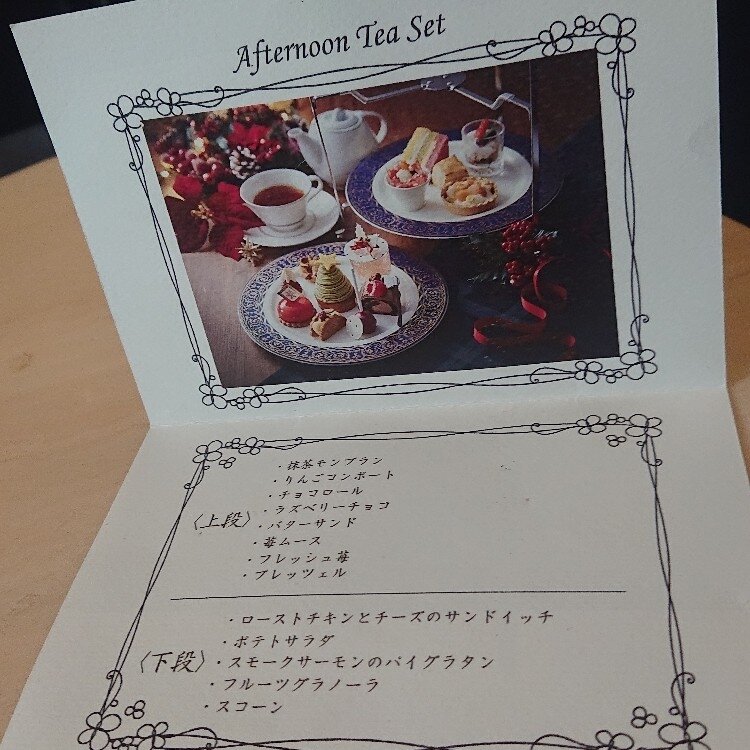 Afternoon Tea Set
・抹茶モンブラン
・りんごコンポート
・チョコロール
・ラズベリーチョコ
〈上段〉・バターサンド
・苺ムース
・フレッシュ苺
・プレッツェル
・ローストチキンとチーズのサンドイッチ
・ポテトサラダ
〈下段〉・スモークサーモンのパイグラタン
・フルーツグラノーラ
・スコーン